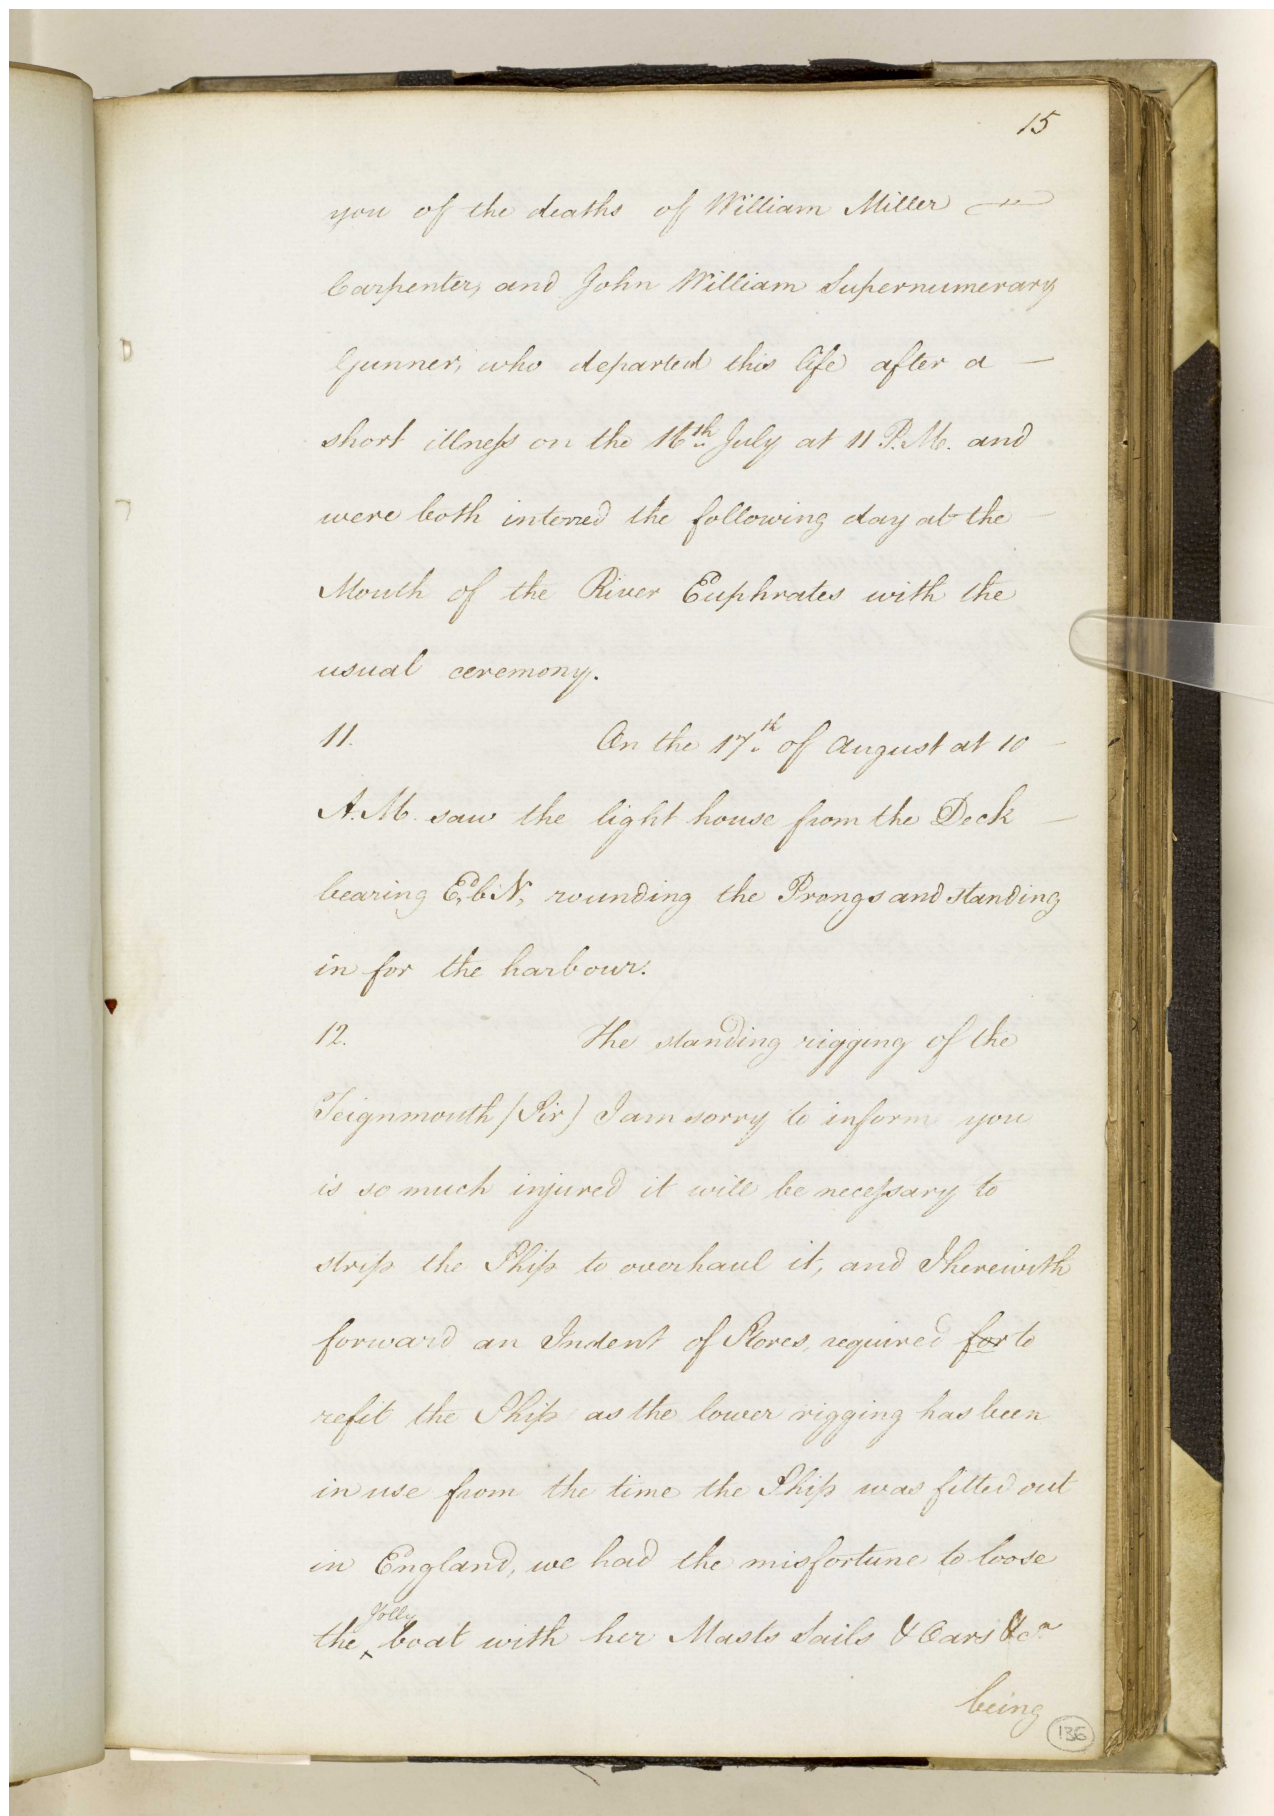 15
you of the deaths of William Miller —
Carpenter, and John William Supernumerary
Gunner, who departed this life after a —
short illneſs on the 16th July at 11 P.M. and
were both interred the following day at the —
Mouth of the River Euphrates with the
usual ceremony.
11. On the 17th of August at 10 —
A.M. saw the light house from the Deck —
bearing E.b.N, rounding the Prongs and standing
in for the harbour.
12. The standing rigging of the
Teignmouth /Sir/ I am sorry to inform you
is so much injured it will be neceſsary to
strip the Ship to overhaul it, and I herewith
forward an Indent of Stores, required for to
refit the Ship as the lower rigging has been
in use from the time the Ship was fitted out
in England, we had the misfortune to loose
the Jolly boat with her Masts Sails & Oars &ca
being
136